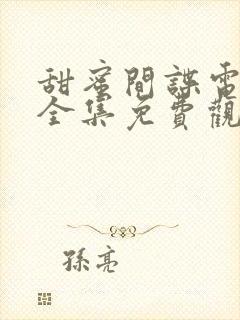 甜蜜間諜電
全集免費觀
孫亮